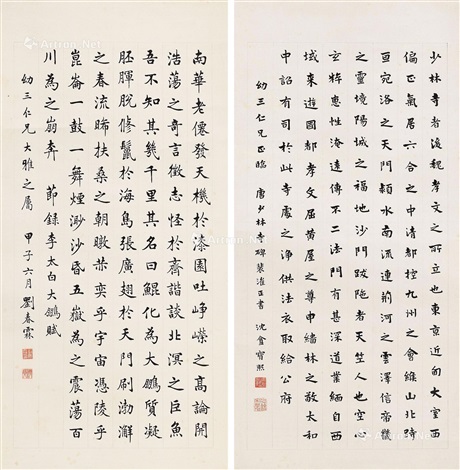 少林寺者後魏孝文之所立也東京近甸大室西
偏正氣居六合之中清都控九州之會緱山北峙
亘宛洛之天門潁水南流連荊河之雲澤信帝畿
之靈境陽城之福地沙門跋陁者天竺人也空心
玄粹惠性淹遠傳不二法門有甚深道業緬自西
域來遊國都孝文屈黃屋之尊申緇林之敬太和
中詔有司於此寺處之淨供法衣取給公府
幼三仁兄正臨 唐少林寺碑裴漼正書 沈盦寶熙
南華老僊發天機於漆園吐崢嶸之高論開
浩蕩之奇言徵志怪於齊諧談北溟之巨魚
吾不知其幾千里其名曰鯤化為大鵬質凝
胚渾脫修鬣於海島張廣翅於天門刷渤澥
之春流晞扶桑之朝暾赫奕乎宇宙憑陵乎
崑崙一鼓一舞煙渺沙昏五嶽為之震蕩百
川為之崩奔 節錄李太白大鵬賦
幼三仁兄大雅之屬 甲子六月劉春霖